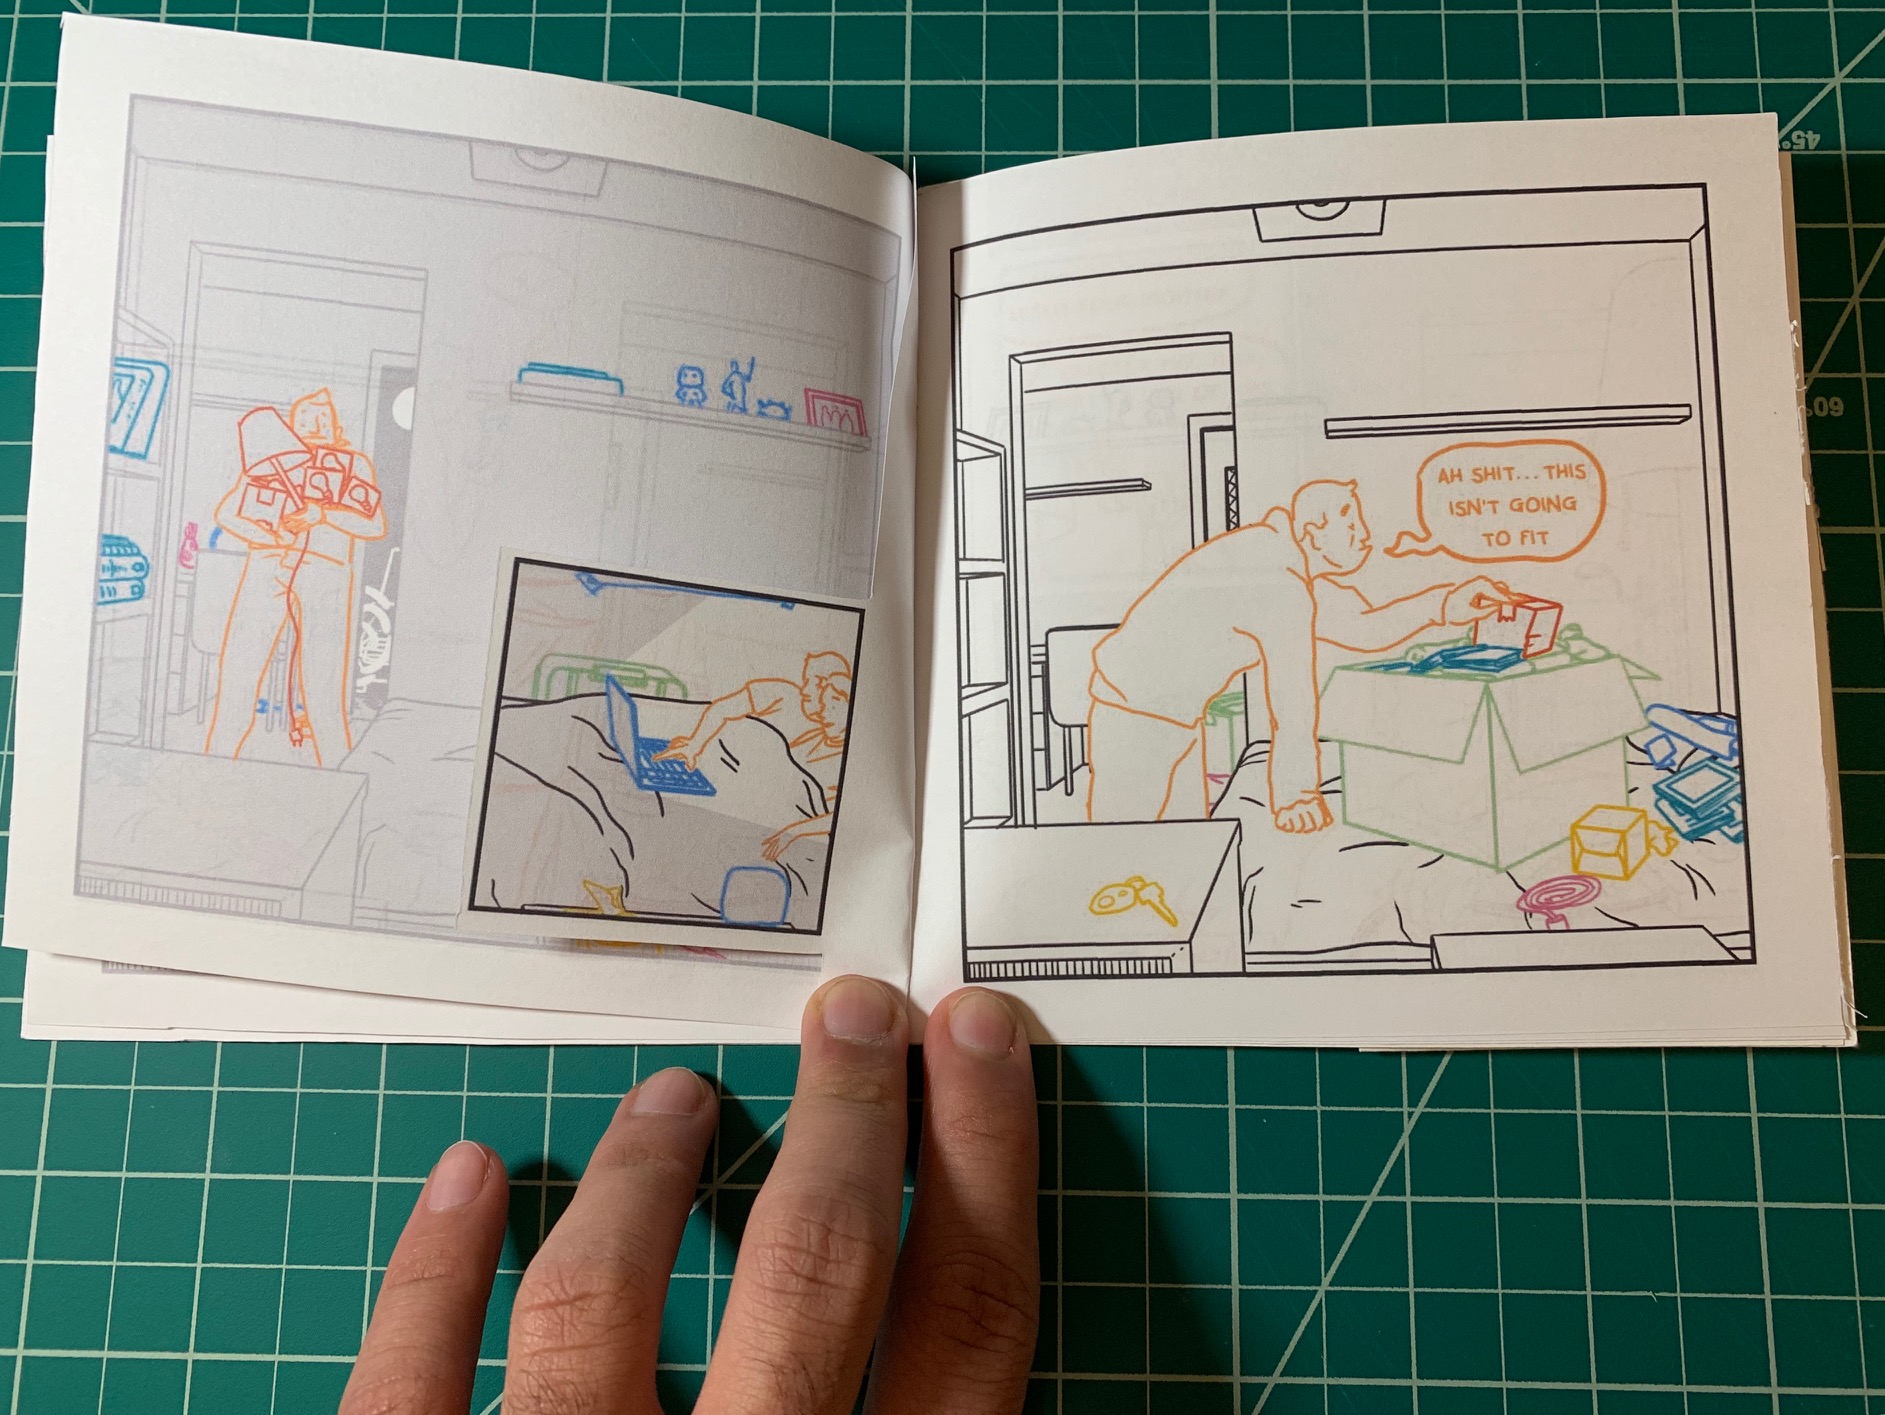 AH SHIT... THIS
ISN'T GOING
TO FIT
45°
60°